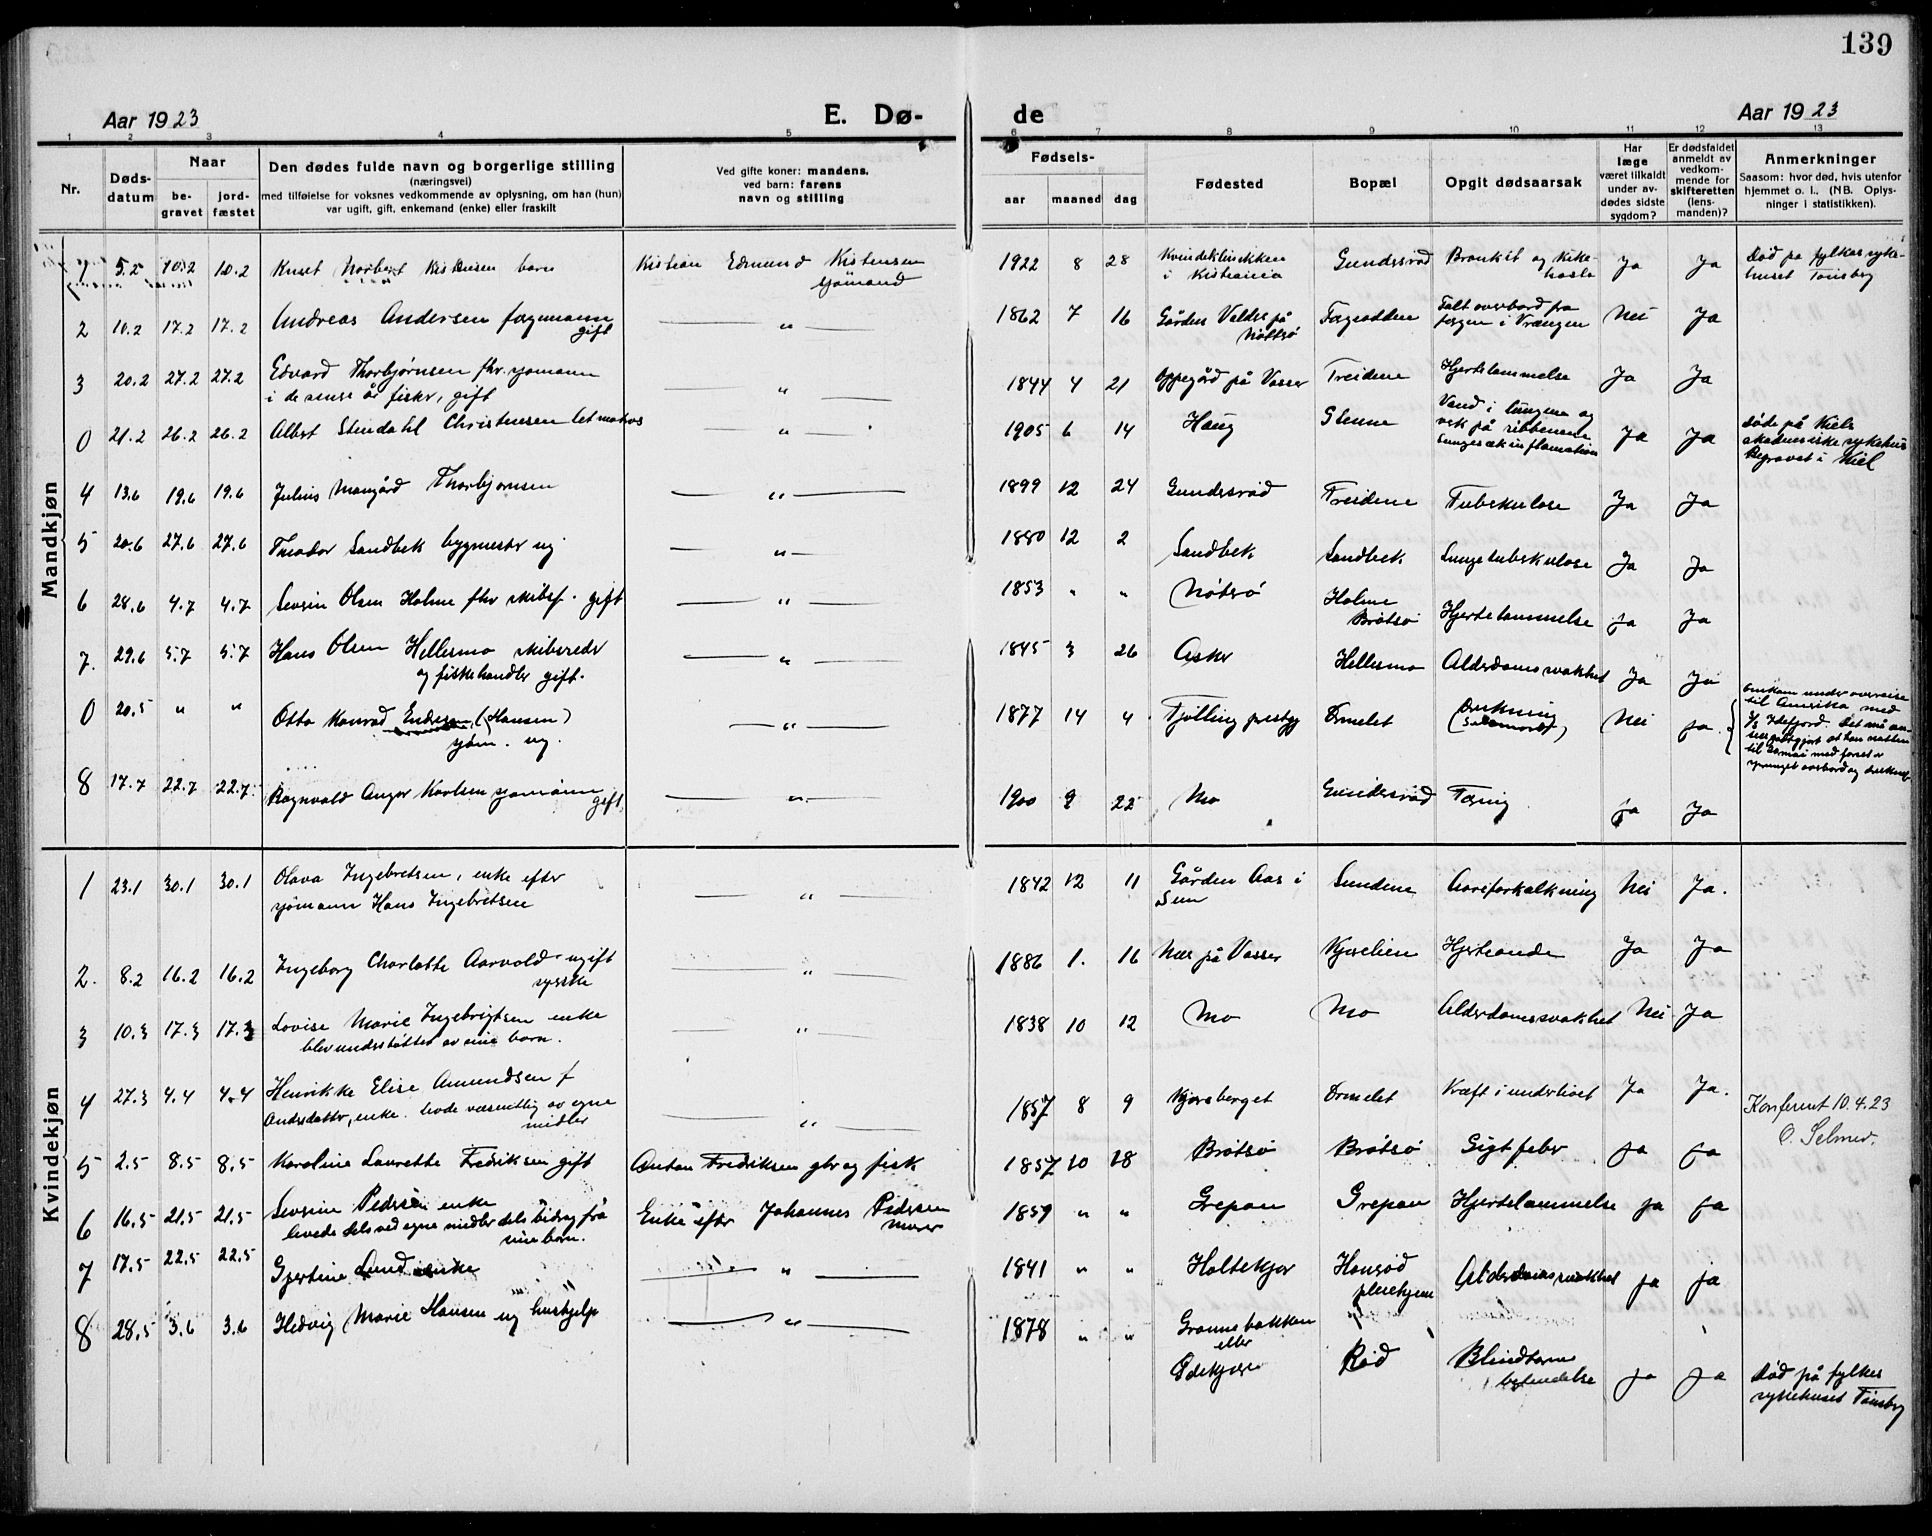 139
Aar 1923
E. Dø-
de
Aar 1923
1 2 3 4 5 6 7 8 9 10 11 12 13
Nr.
Døds-
datum
Naar
be-
gravet
jord-
fæstet
Den dødes fulde navn og borgerlige stilling
(næringsvei)
med tilføielse for voksnes vedkommende av oplysning, om han (hun)
var ugift, gift, enkemand (enke) eller fraskilt
Ved gifte koner: mandens.
ved barn: farens
navn og stilling
Fødsels-
aar maaned dag
Fødested
Bopæl
Opgit dødsaarsak
Har
læge
været tilkaldt
under av-
dødes sidste
sygdom?
Er dødsfaldet
anmeldt av
vedkom-
mende for
skifteretten
(lens-
manden)?
Anmerkninger
Saasom: hvor død, hvis utenfor
hjemmet o. l., (NB. Oplys-
ninger i statistikken).
Mandkjøn
1 5.2 10.2 10.2 Knut Norbert Kristensen barn Kristian Edmund Kristensen
sjømand
1922 8 28 Kvindeklinikken
i Kristiania
Gundersrød Bronkit og kik-
hoste
Ja Ja Død på fylkessyke-
huset Tønsberg
2 10.2 17.2 17.2 Andreas Andersen fergemann
gift
"
1862 7 16 Gården Veldre på
Nøtterø
Fergeodden Falt overbord fra
fergen i Vrængen
Nei Ja
3 20.2 27.2 27.2 Edvard Thorbjørnsen fhv. sjømann
i de senere år fisker, gift
"
1844 4 21 Oppegård på Vasser Treidene Hjertelammelse Ja Ja
0 21.2 26.2 26.2 Albert Stendahl Christensen letmatros
"
1905 6 14 Haug Glenne Vand i lungene og
vek på ribbenene
Lungesækinflamation
Ja Ja Døde på Kiels
akademiske sykehus
Begravet i Kiel
4 13.6 19.6 19.6 Julius Morgård Thorbjørnsen
"
1899 12 24 Gundersrød Treidene Tuberkulose Ja Ja
5 20.6 27.6 27.6 Theodor Sandbek bygmester ug
"
1880 12 2 Sandbek Sandbek Lungetuberkulose Ja Ja
6 28.6 4.7 4.7 Severin Olsen Holme fhv skibsf. gift
"
1853 " " Nøterø Holme
Brøtsø
Hjertelammelse ja Ja
7. 29.6 5.7 5.7 Hans Olsen Hellesmo skibsreder
og fiskehandler gift.
"
1845 3 26 Asker Hellesmo Alderdomssvakhet Ja Ja
0 20.5 " " Otto Konrad Endresen (Hansen)
sjøm. ug.
"
1877 14 4 Tjølling prestgj Ormelet Drukning
(Selvmord)
Nei ja Omkom under overreise
til Amerika med
D/S Idefjord. Det må an-
sees godtgjort at han natten
til 20 mai med forsæt er
sprunget overbord og druknet
8 17.7 22.7 22.7 Ragnvald Anger Karlsen sjømann
gift
"
1900 9 22 Mo Gundersrød Tæring ja Ja
Kvindekjøn
1 23.1 30.1 30.1 Olava Ingebretsen, enke efter
sjømann Hans Ingebretsen
"
1842 12 11 Gården Aas i
Sem
Sundene Aareforkalkning Nei Ja.
2. 8.2 16.2 16.2 Ingeborg Charlotte Aarvold ugift
syerske
"
1886 1. 16 Næs på Vasser Kjærelien Hjerteonde Ja Ja
3 10.3 17.3 17.3 Lovise Marie Ingebrigtsen enke
blev understøttet av sine barn.
"
1838 10 12 Mo Mo Alderdomssvakhet Nei Ja
4 27.3 4.4 4.4 Henrikke Elise Amundsen f
Andersdatter, enke. levde væsentlig av egne
midler
"
1857 8 9 Kjørsberget Ormelet Kræft i underlivet Ja Ja.
Konferert 10.4.23
O. Selmer.
5 2.5 8.5 8.5 Karoline Laurette Fredriksen gift Anton Fredriksen gbr og fisk
1857 10 18 Brøtsø Brøtsø Gigtfeber ja ja
6 16.5 21.5 21.5 Severine Pedersen enke
levede dels ved egne midler dels bidrag frå
sine barn.
Enke efter Johannes Pedersen
murer
1859 " " Grepan Grepan Hjertelammelse ja ja
7 17.5 22.5 22.5 Gjertine Lund enke
"
1841 " " Holtekjær Hønsrød
pleiehjem
Alderdomssvakhet ja ja
8 28.5 3.6 3.6 Hedvig Marie Hansen ug hushjelp
"
1878 " " Grønnebakken
eller
Ødekjære
Rød Blindtarm
betendelse
ja ja Død på fylkes
sykehuset Tønsberg